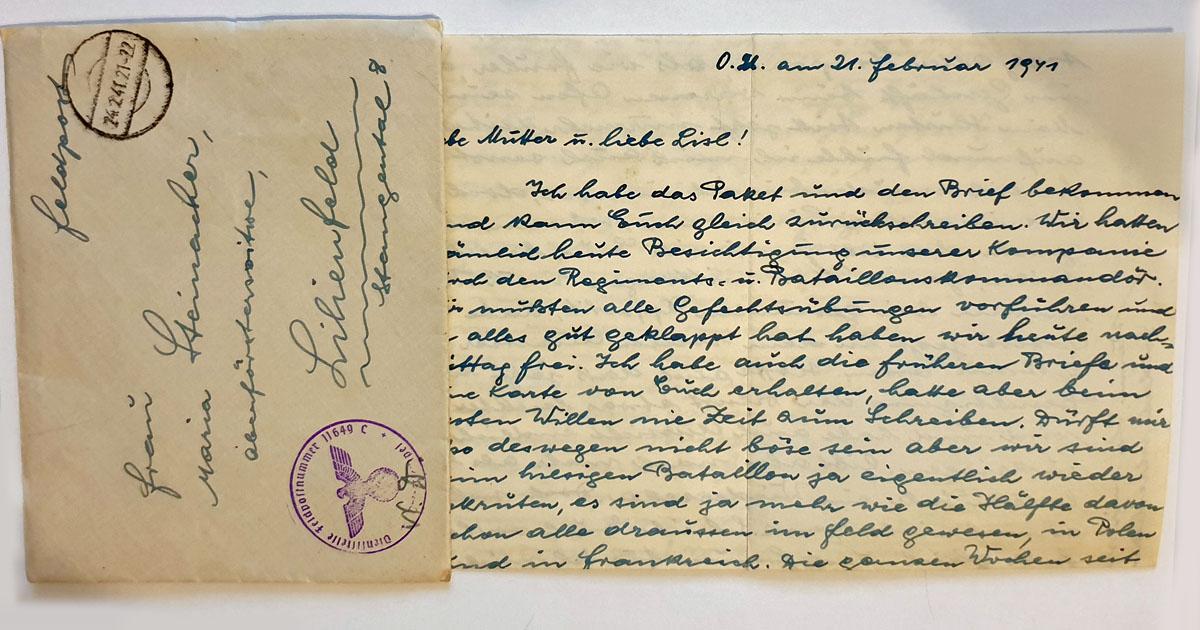 Feldpost
24.2.41.21-22
Frau
Maria Steinacher,
Oberförsterswitwe,
Lilienfeld
Stangental 8
Dienststelle Feldpostnummer 11649 C
O.U. am 21. Februar 1941
be Mutter u. liebe Lisl!
Ich habe das Paket und den Brief bekommen
nd kann Euch gleich zurückschreiben. Wir hatten
ämlich heute Besichtigung unserer Kompanie
rch den Regiments- u. Bataillonskommandör.
r mußten alle Gefechtsübungen vorführen und
alles gut geklappt hat haben wir heute nach-
ittag frei. Ich habe auch die früheren Briefe und
ne Karte von Euch erhalten, hatte aber beim
sten Willen nie Zeit zum Schreiben. Dürft mir
so deswegen nicht böse sein aber wir sind
im hiesigen Bataillon ja eigentlich wieder
kruten, es sind ja mehr wie die Hälfte davon
chon alle draussen im Feld gewesen, in Polen
nd in Frankreich. Die ganzen Wochen seit